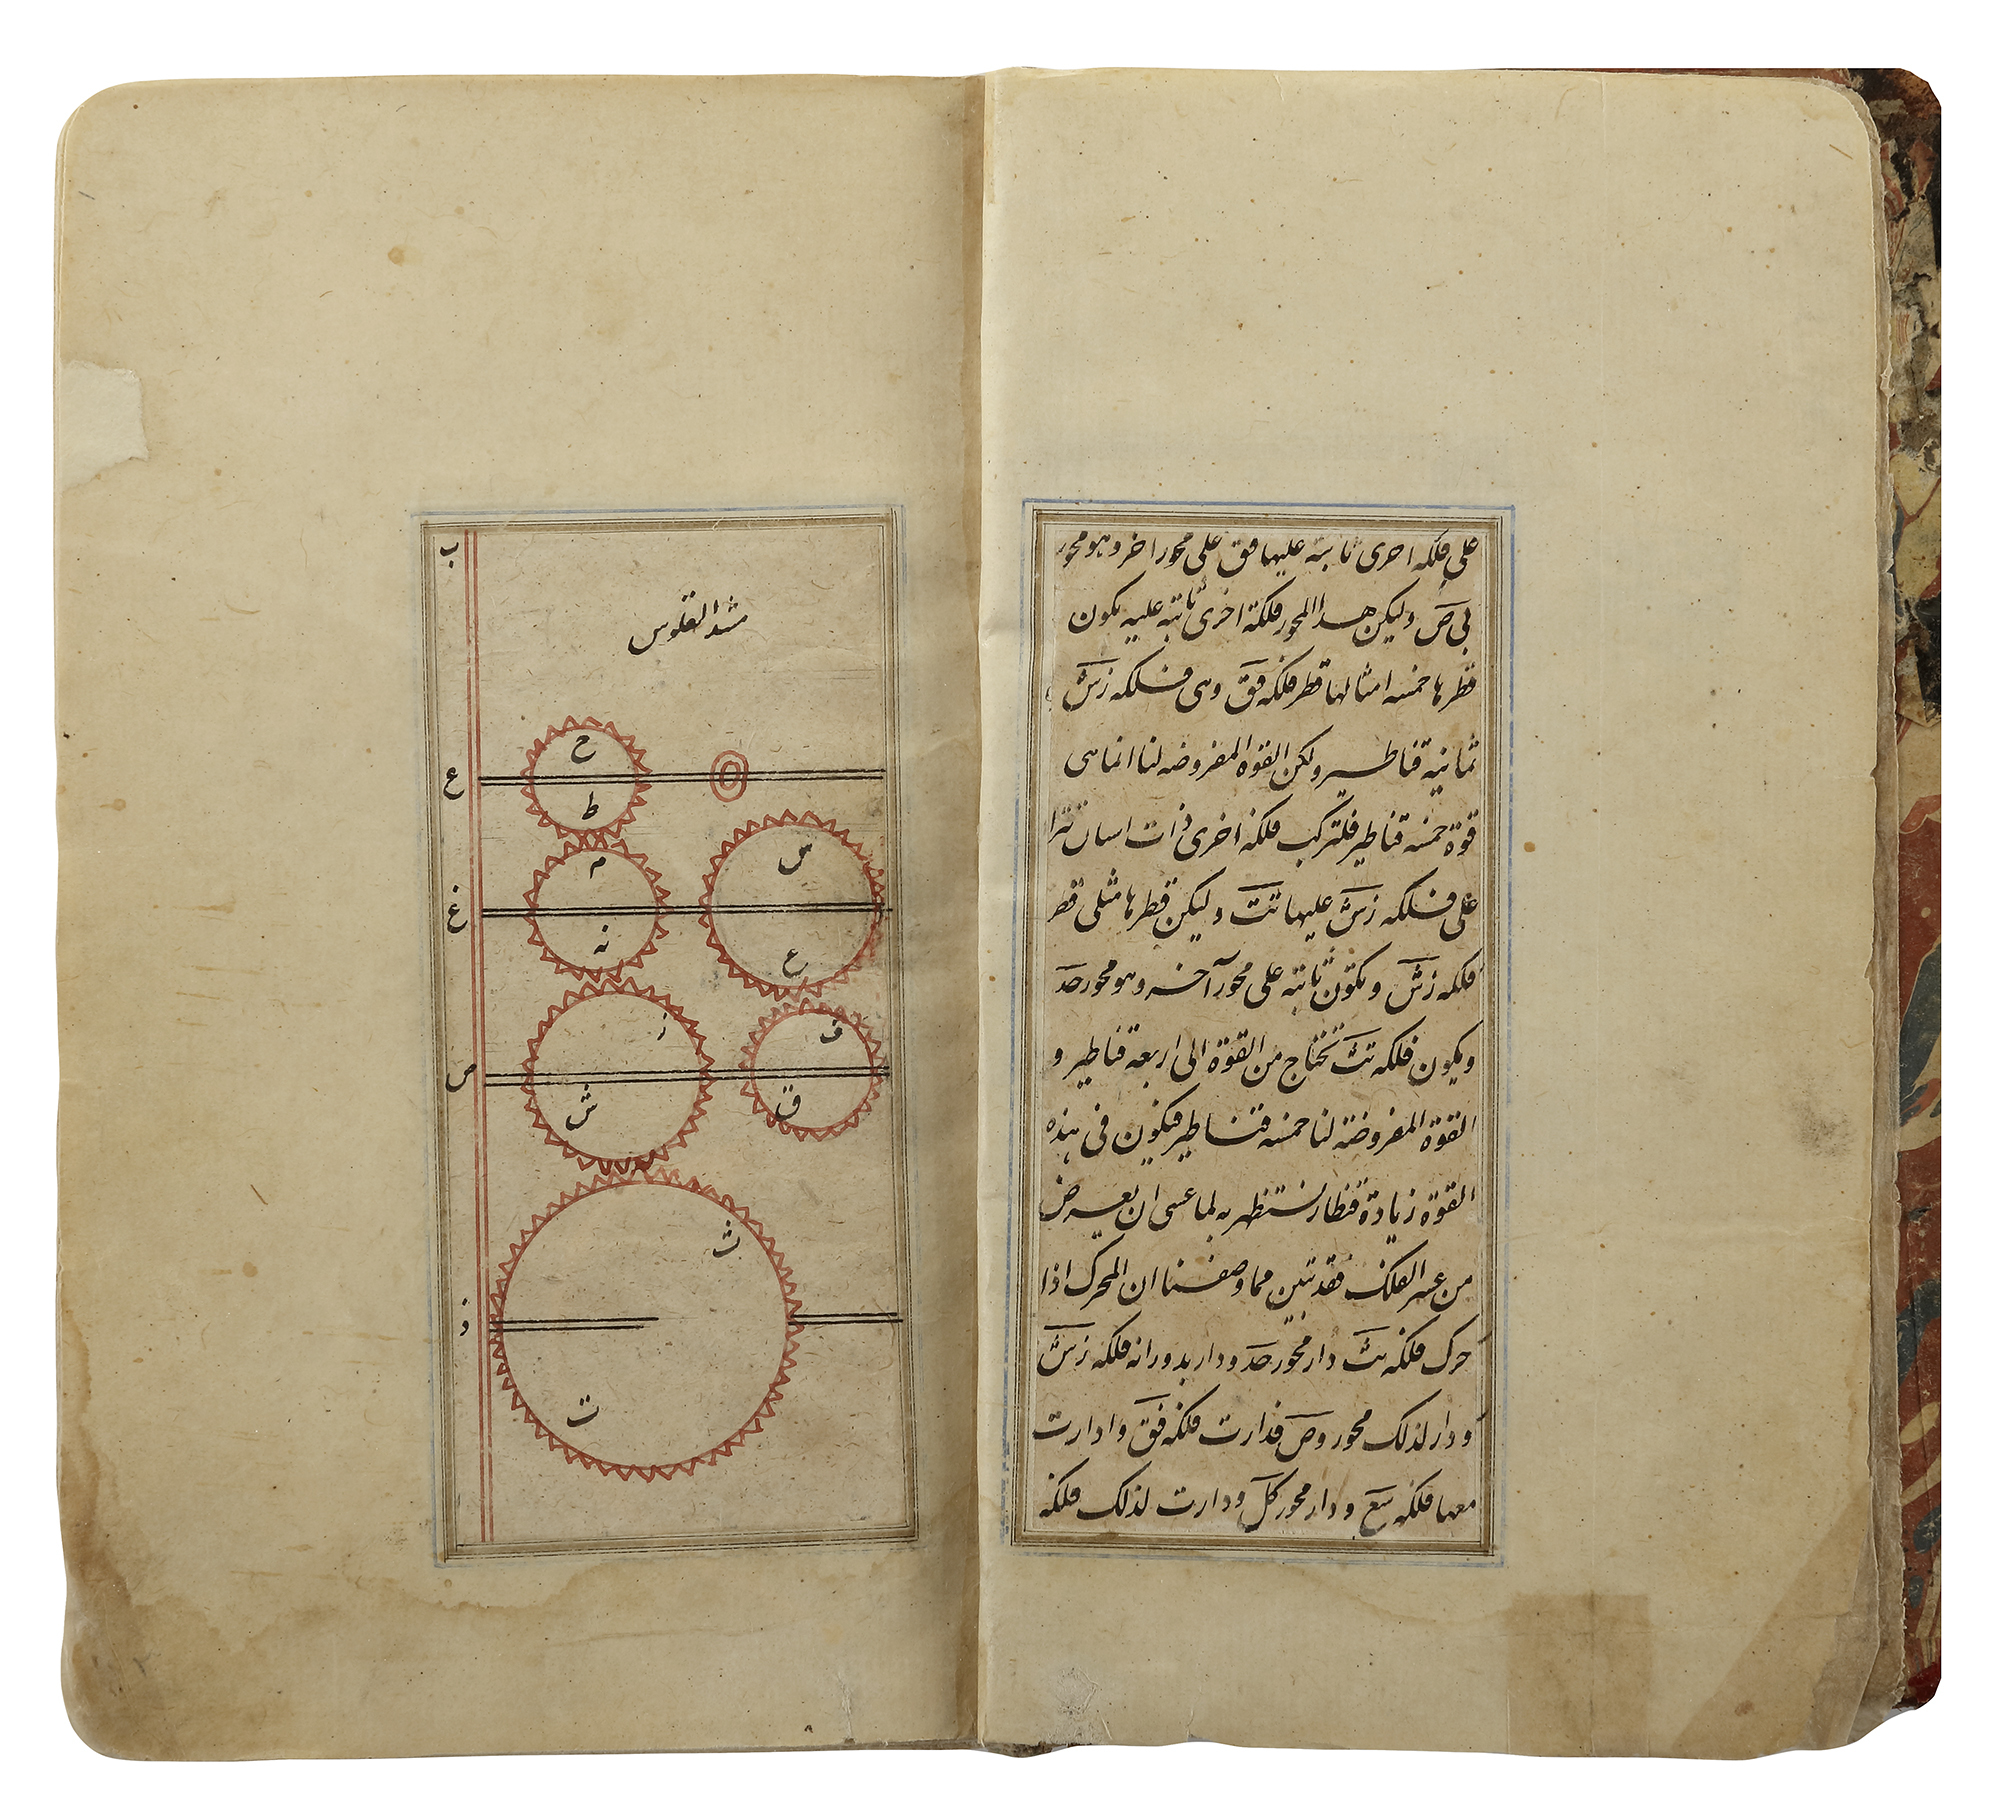 على فلكه اخرى ثابتة عليها فق على محور اخر وهو محور
ى ص وليكن هدا المحور فلكة اخرى ثابته عليه يكون
قطرها خمسه امثالها قطر فلكه فق وهى فلكه زش
ثمانيه قناطير ولكن القوه المفروضه لنا انما هى
قوة خمسه قناطير فلتركب فلكة اخرى ذات اسنان
على فلكه زش عليها تث وليكن قطرها مثلى قطر
فلكه زش وتكون ثابته على محور آخر وهو محور
ويكون فلكه تث تحتاج من القوة الى اربعة قناطير و
القوة المفروضة لنا خمسه قناطير فيكون فى هذه
القوة زيادة قنطار نستظهر به لما عسى ان يعرض
من عسر الفلك فقد تبين مما وصفنا ان المحرك اذا
حرك فلكة تث دار محور ودار بدورانه فلكه زش
ودار لذلك محور وص فدارت فلكة فق وادارت
معها فلكة سع ودار محور كل ودارت لذلك فلكة
ب
مشد القلوس
ح
ع
ط
م
س
غ
نه
ع
ز
ف
ص
ش
ق
ث
ذ
ت